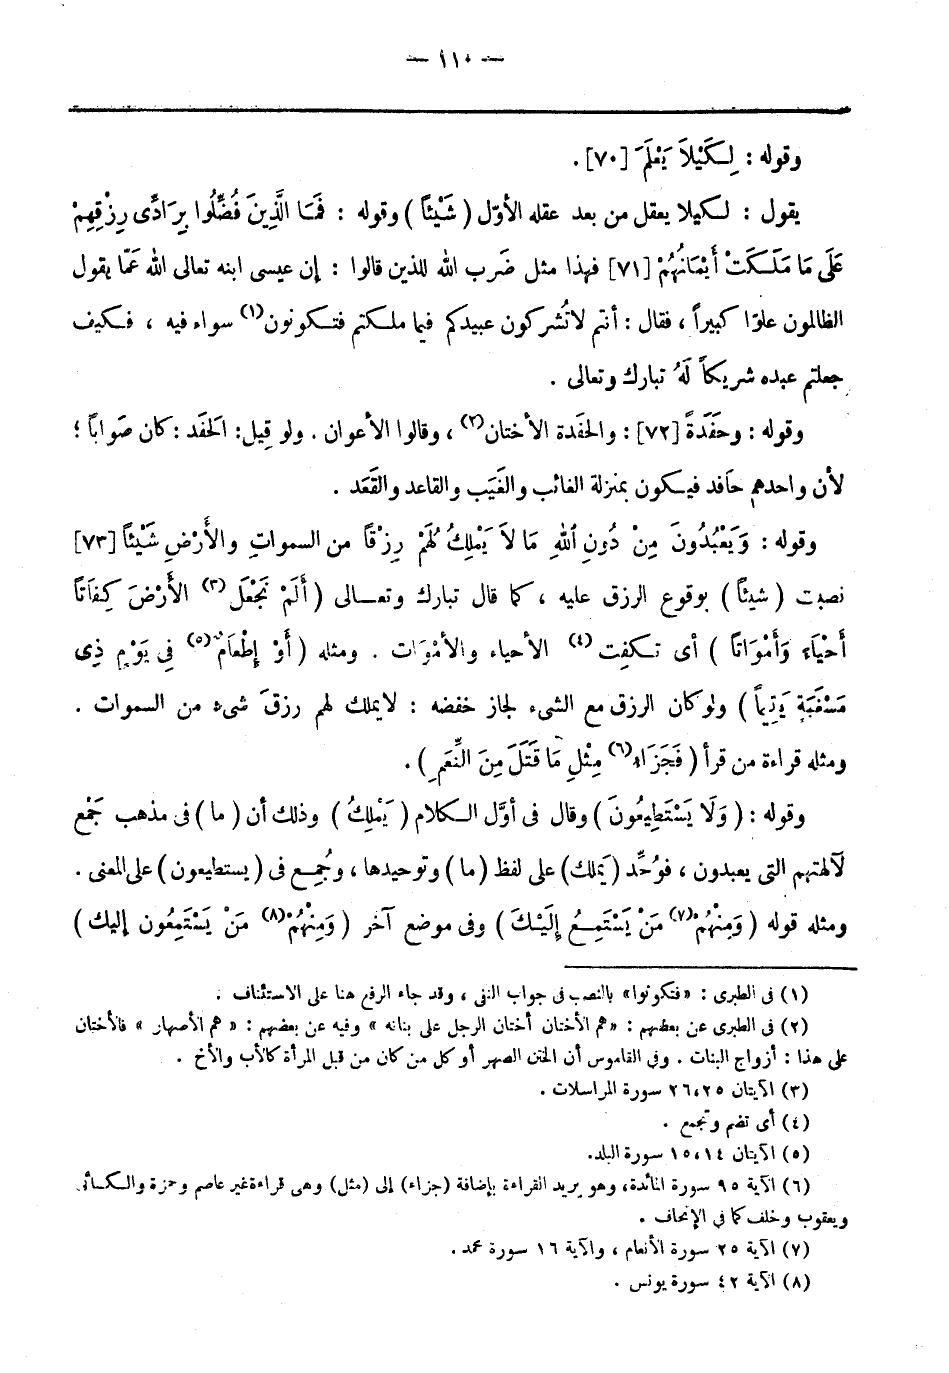 — ١١٠ —
وقوله : لِكَيْلاَ يَعْلَمَ [٧٠] .
يقول : لكيلا يعقل من بعد عقله الأوّل ( شَيْئاً ) وقوله : فَمَا الَّذِينَ فُضِّلُوا بِرَادِّى رِزْقِهِمْ
عَلَى مَا مَلَكَتْ أَيْمَانُهُمْ [٧١] فهذا مثل ضَرب الله للذين قالوا : إن عيسى ابنه تعالى الله عَمّا يقول
الظالمون علوّا كبيراً ، فقال : أنتم لا تُشركون عبيدكم فيما ملكتم فتكونون(١) سواء فيه ، فكيف
جعلتم عبده شريكاً لَهُ تبارك وتعالى .
وقوله : وحَفَدَةً [٧٢] : والحفدة الأختان(٢) ، وقالوا الأعوان . ولو قيل: الحَفَد : كان صَواباً ؛
لأن واحدهم حَافد فيكون بمنزلة الغائب والغَيَب والقاعد والقَعَد .
وقوله : وَيَعْبُدُونَ مِنْ دُونِ اللهِ مَا لاَ يَمْلِكُ لَهُمْ رِزْقاً من السمواتِ والأَرْضِ شَيْئاً [٧٣]
نصبت ( شيئاً ) بوقوع الرزق عليه ، كما قال تبارك وتعالى ( أَلَمْ نَجْعَل(٣) الأَرْضَ كِفَاتاً
أَحْيَاءً وَأَمْوَاتاً ) أى تكفِت(٤) الأحياء والأمْوات . ومثله ( أَوْ إِطْعَامٌ(٥) فِى يَوْمٍ ذِى
مَسْغَبَةٍ يَتِيماً ) ولو كان الرزق مع الشىء لجاز خفضه : لا يملك لهم رزقَ شىءٍ من السموات .
ومثله قراءة من قرأ ( فَجَزَاء(٦) مِثْلِ مَا قَتَلَ مِنَ النَّعَمِ ) .
وقوله : ( وَلَا يَسْتَطِيعُونَ ) وقال فى أوّل الكلام ( يَمْلِكُ ) وذلك أن ( ما ) فى مذهب جَمْع
لآلهتهم التى يعبدون ، فوُحِّد ( يَملك ) على لفظ ( ما ) وتوحيدها ، وجُمِع فى ( يستطيعون ) على المعنى .
ومثله قوله ( وَمِنْهُمْ(٧) مَنْ يَسْتَمِعُ إِلَيْكَ ) وفى موضع آخر ( وَمِنْهُمْ(٨) مَنْ يَسْتَمِعُون إليك )
(١) فى الطبرى : «فتكونوا» بالنصب فى جواب النفى ، وقد جاء الرفع هنا على الاستئناف .
(٢) فى الطبرى عن بعضهم : «هم الأختان أختان الرجل على بناته » وفيه عن بعضهم : « هم الأصهار » فالأختان
على هذا : أزواج البنات . وفى القاموس أن الختن الصهر أو كل من كان من قبل المرأة كالأب والأخ .
(٣) الآيتان ٢٥،٢٦ سورة المراسلات .
(٤) أى تضم وتجمع .
(٥) الآيتان ١٤،١٥ سورة البلد.
(٦) الآية ٩٥ سورة المائدة، وهو يريد القراءة بإضافة (جزاء) إلى (مثل) وهى قراءة غير عاصم وحمزة والكسائى
ويعقوب وخلف كما فى الإتحاف .
(٧) الآية ٢٥ سورة الأنعام ، والآية ١٦ سورة محمد .
(٨) الآية ٤٢ سورة يونس .